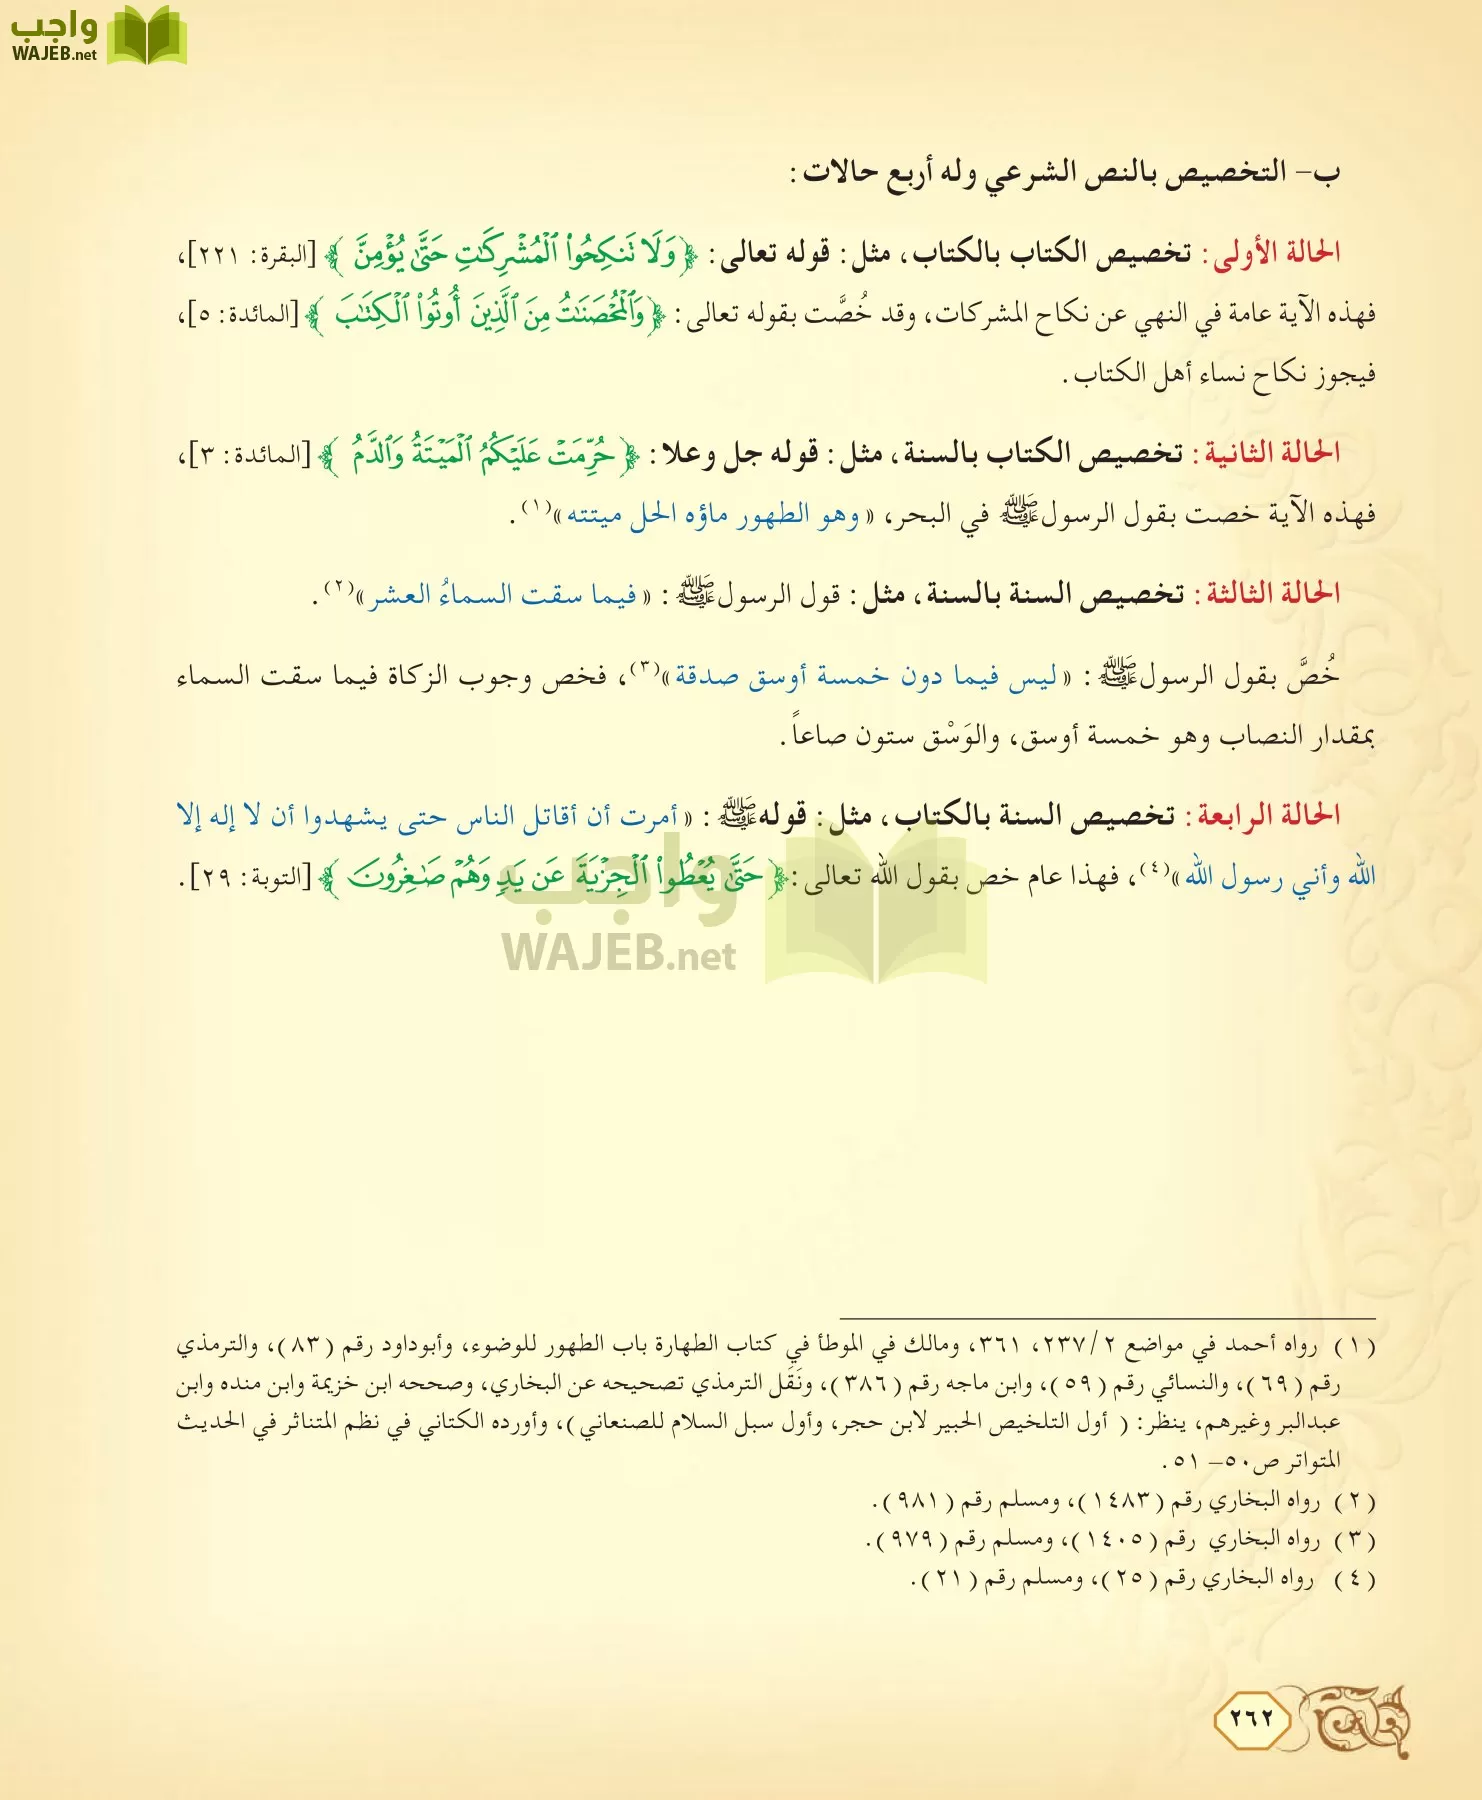 واجب
WAJEB.net
ب- التخصيص بالنص الشرعي وله أربع حالات:
الحالة الأولى: تخصيص الكتاب بالكتاب، مثل: قوله تعالى: ﴿وَلَا تَنكِحُوا۟ ٱلْمُشْرِكَـٰتِ حَتَّىٰ يُؤْمِنَّ﴾ [البقرة: ٢٢١]،
فهذه الآية عامة في النهي عن نكاح المشركات، وقد خُصَّت بقوله تعالى: ﴿وَٱلْمُحْصَنَـٰتُ مِنَ ٱلَّذِينَ أُوتُوا۟ ٱلْكِتَـٰبَ﴾ [المائدة: ٥]،
فيجوز نكاح نساء أهل الكتاب.
الحالة الثانية: تخصيص الكتاب بالسنة، مثل: قوله جل وعلا: ﴿حُرِّمَتْ عَلَيْكُمُ ٱلْمَيْتَةُ وَٱلدَّمُ﴾ [المائدة: ٣]،
فهذه الآية خصت بقول الرسول ﷺ في البحر، «وهو الطهور ماؤه الحل ميتته»(١).
الحالة الثالثة: تخصيص السنة بالسنة، مثل: قول الرسول ﷺ: «فيما سقت السماءُ العشر»(٢).
خُصَّ بقول الرسول ﷺ: «ليس فيما دون خمسة أوسق صدقة»(٣)، فخص وجوب الزكاة فيما سقت السماء
بمقدار النصاب وهو خمسة أوسق، والوَسْق ستون صاعاً.
الحالة الرابعة: تخصيص السنة بالكتاب، مثل: قوله ﷺ: «أمرت أن أقاتل الناس حتى يشهدوا أن لا إله إلا
الله وأني رسول الله»(٤)، فهذا عام خص بقول الله تعالى: ﴿حَتَّىٰ يُعْطُوا۟ ٱلْجِزْيَةَ عَن يَدٍ وَهُمْ صَـٰغِرُونَ﴾ [التوبة: ٢٩].
واجب
WAJEB.net
(١) رواه أحمد في مواضع ٢/ ٢٣٧، ٣٦١، ومالك في الموطأ في كتاب الطهارة باب الطهور للوضوء، وأبوداود رقم (٨٣)، والترمذي
رقم (٦٩)، والنسائي رقم (٥٩)، وابن ماجه رقم (٣٨٦)، ونَقَل الترمذي تصحيحه عن البخاري، وصححه ابن خزيمة وابن منده وابن
عبدالبر وغيرهم، ينظر: (أول التلخيص الحبير لابن حجر، وأول سبل السلام للصنعاني)، وأورده الكتاني في نظم المتناثر في الحديث
المتواتر ص٥٠- ٥١.
(٢) رواه البخاري رقم (١٤٨٣)، ومسلم رقم (٩٨١).
(٣) رواه البخاري رقم (١٤٠٥)، ومسلم رقم (٩٧٩).
(٤) رواه البخاري رقم (٢٥)، ومسلم رقم (٢١).
٢٦٢